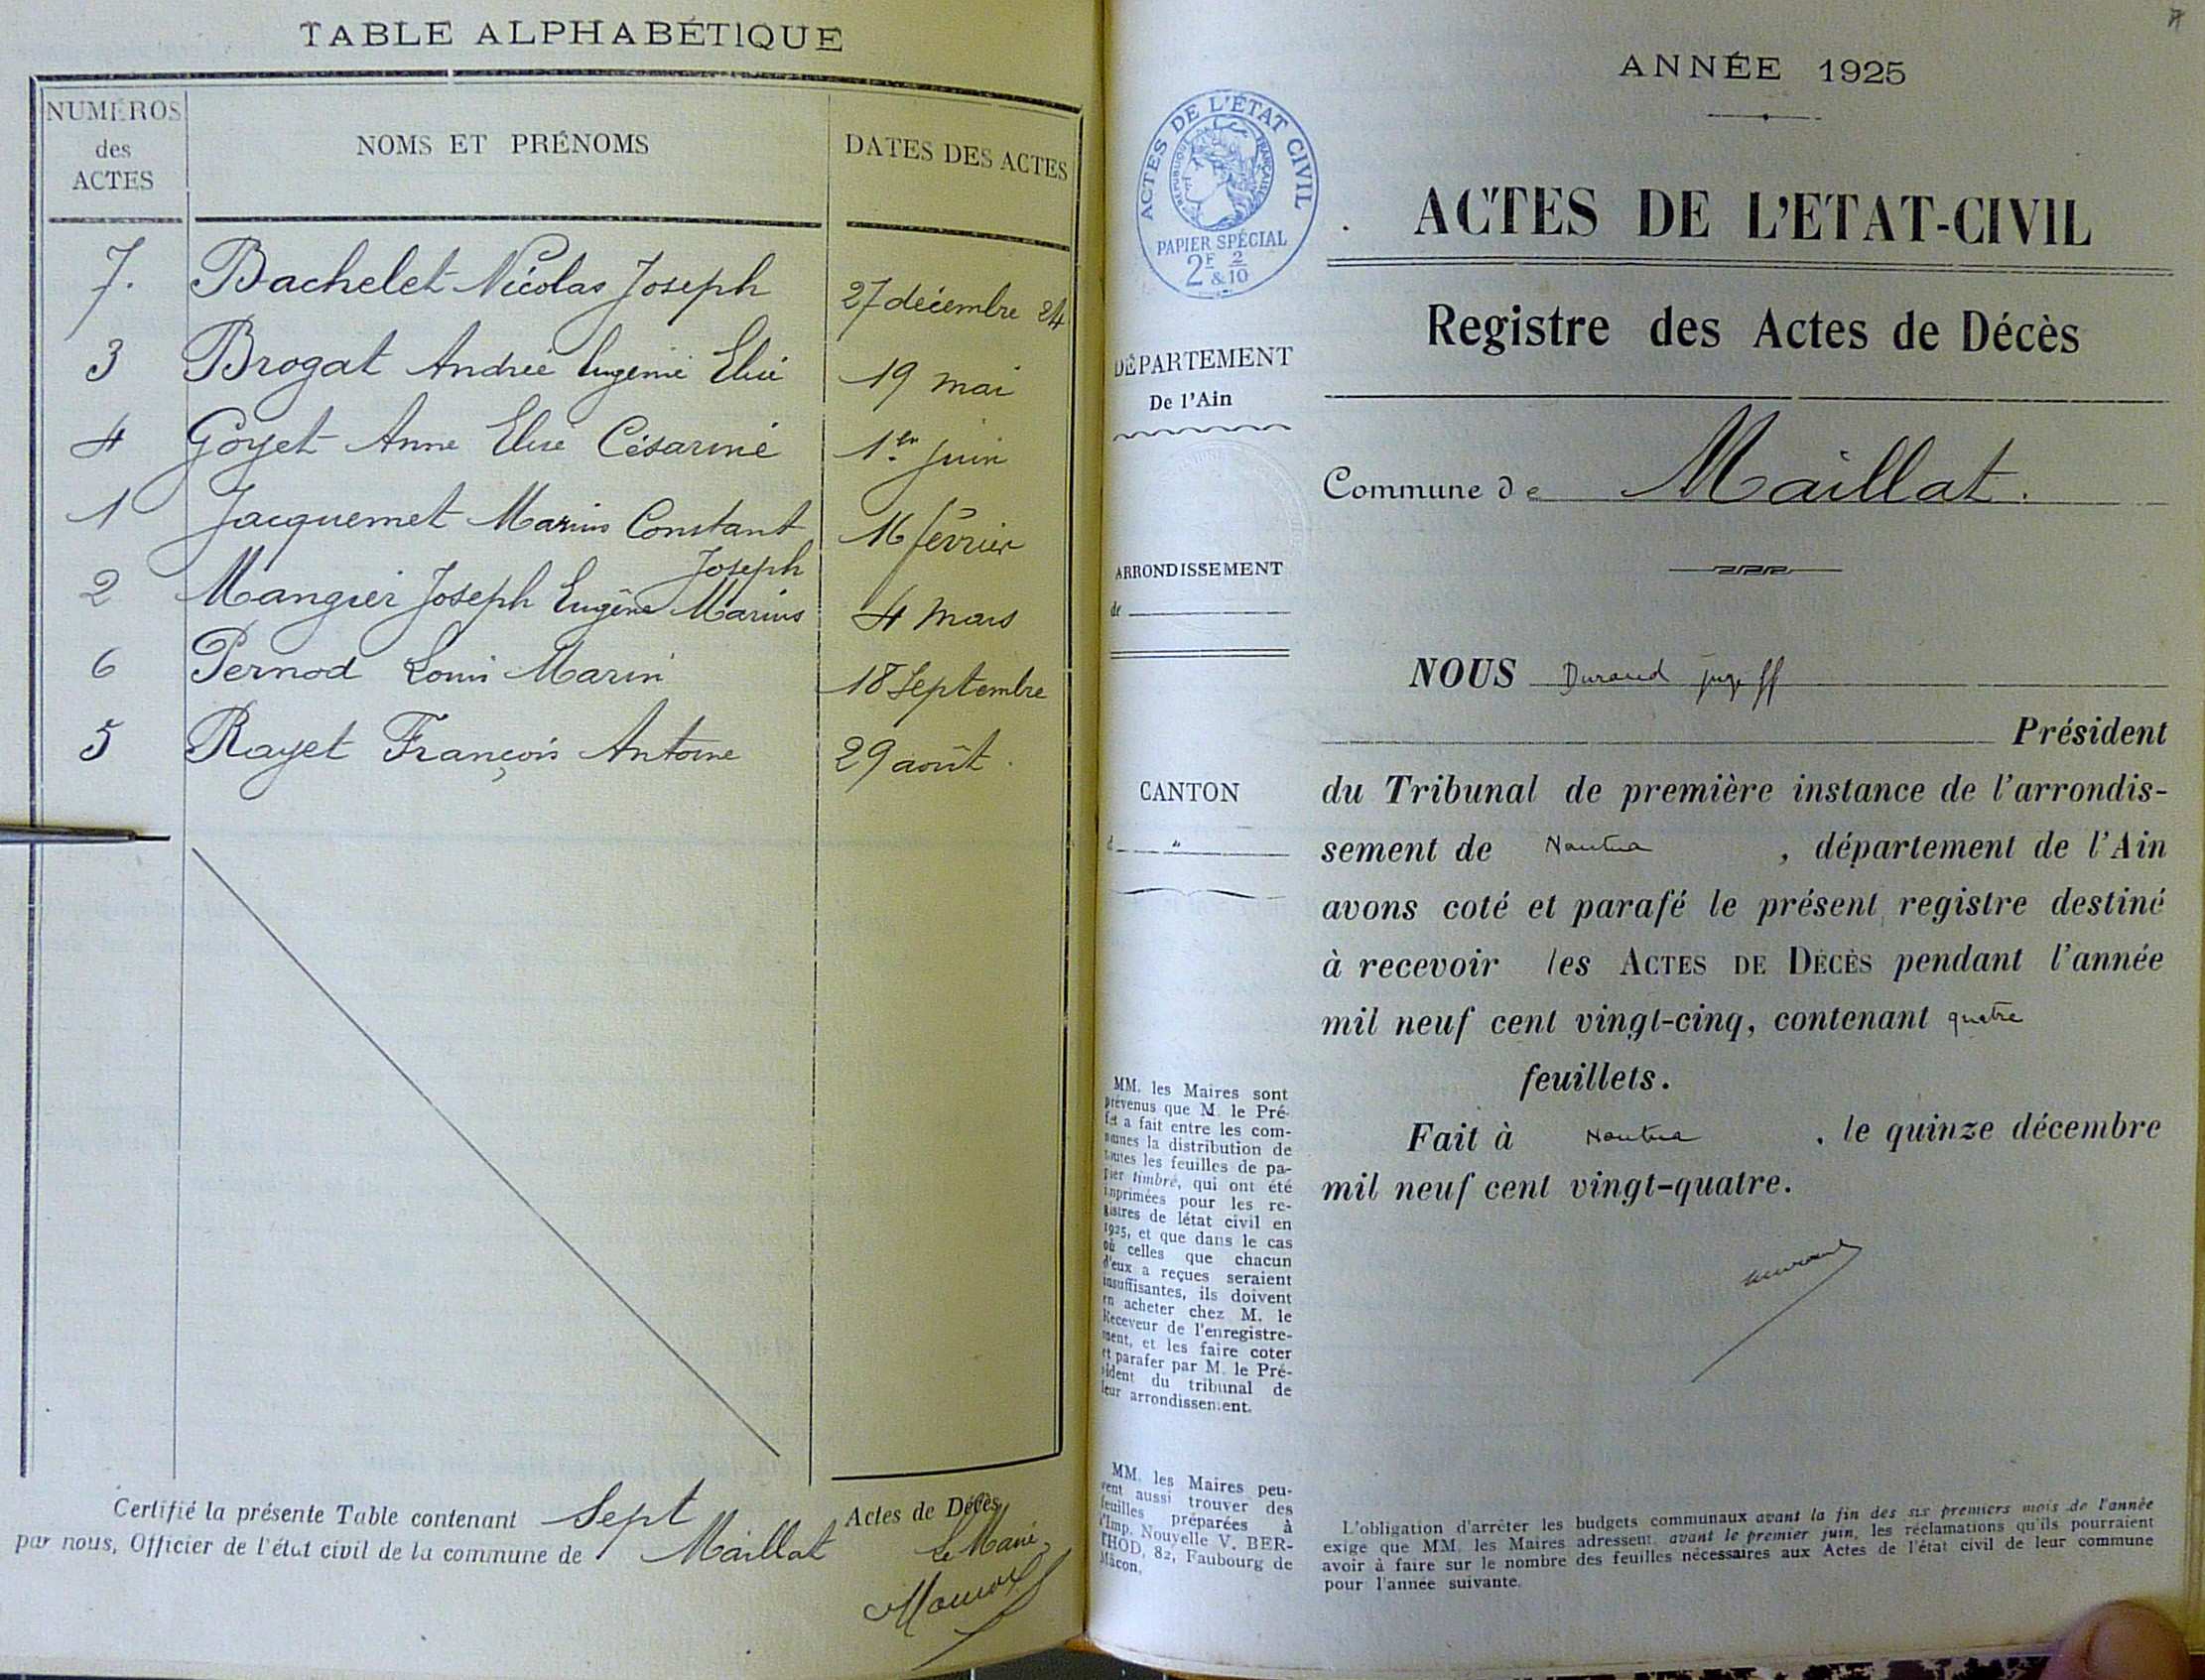 TABLE ALPHABÉTIQUE
NUMÉROS
des
ACTES
NOMS ET PRÉNOMS
DATES DES ACTES
7. Bachelet Nicolas Joseph 27 décembre 24
3 Brogat Andrée Eugénie Elise 19 mai
4 Goyet Anne Elise Césarine 1er juin
1 Jacquemet Marius Constant 16 février
Joseph
2 Mangier Joseph Eugène Marius 4 mars
6 Pernod Louis Marin 18 Septembre
5 Rayet François Antoine 29 août.
Certifié la présente Table contenant Sept Actes de Décès
par nous, Officier de l'état civil de la commune de Maillat
Le Maire
ANNÉE 1925
ACTES DE L'ÉTAT CIVIL
RÉPUBLIQUE FRANÇAISE
PAPIER SPÉCIAL
2F & 2/10
DÉPARTEMENT
De l'Ain
ARRONDISSEMENT
de
CANTON
d "
MM. les Maires sont
prévenus que M. le Pré-
fet a fait entre les com-
munes la distribution de
toutes les feuilles de pa-
pier timbré, qui ont été
imprimées pour les re-
gistres de létat civil en
1925, et que dans le cas
où celles que chacun
d'eux a reçues seraient
insuffisantes, ils doivent
en acheter chez M. le
Receveur de l'enregistre-
ment, et les faire coter
et parafer par M. le Pré-
sident du tribunal de
leur arrondissement.
MM. les Maires peu-
vent aussi trouver des
feuilles préparées à
l'Imp. Nouvelle V. BER-
THOD, 82, Faubourg de
Mâcon.
ACTES DE L'ETAT-CIVIL
Registre des Actes de Décès
Commune de Maillat.
NOUS Durand juge ff
Président
du Tribunal de première instance de l'arrondis-
sement de Nantua, département de l'Ain
avons coté et parafé le présent registre destiné
à recevoir les ACTES DE DÉCÈS pendant l'année
mil neuf cent vingt-cinq, contenant quatre
feuillets.
Fait à Nantua, le quinze décembre
mil neuf cent vingt-quatre.
Durand
L'obligation d'arrêter les budgets communaux avant la fin des six premiers mois de l'année
exige que MM. les Maires adressent, avant le premier juin, les réclamations qu'ils pourraient
avoir à faire sur le nombre des feuilles nécessaires aux Actes de l'état civil de leur commune
pour l'année suivante.